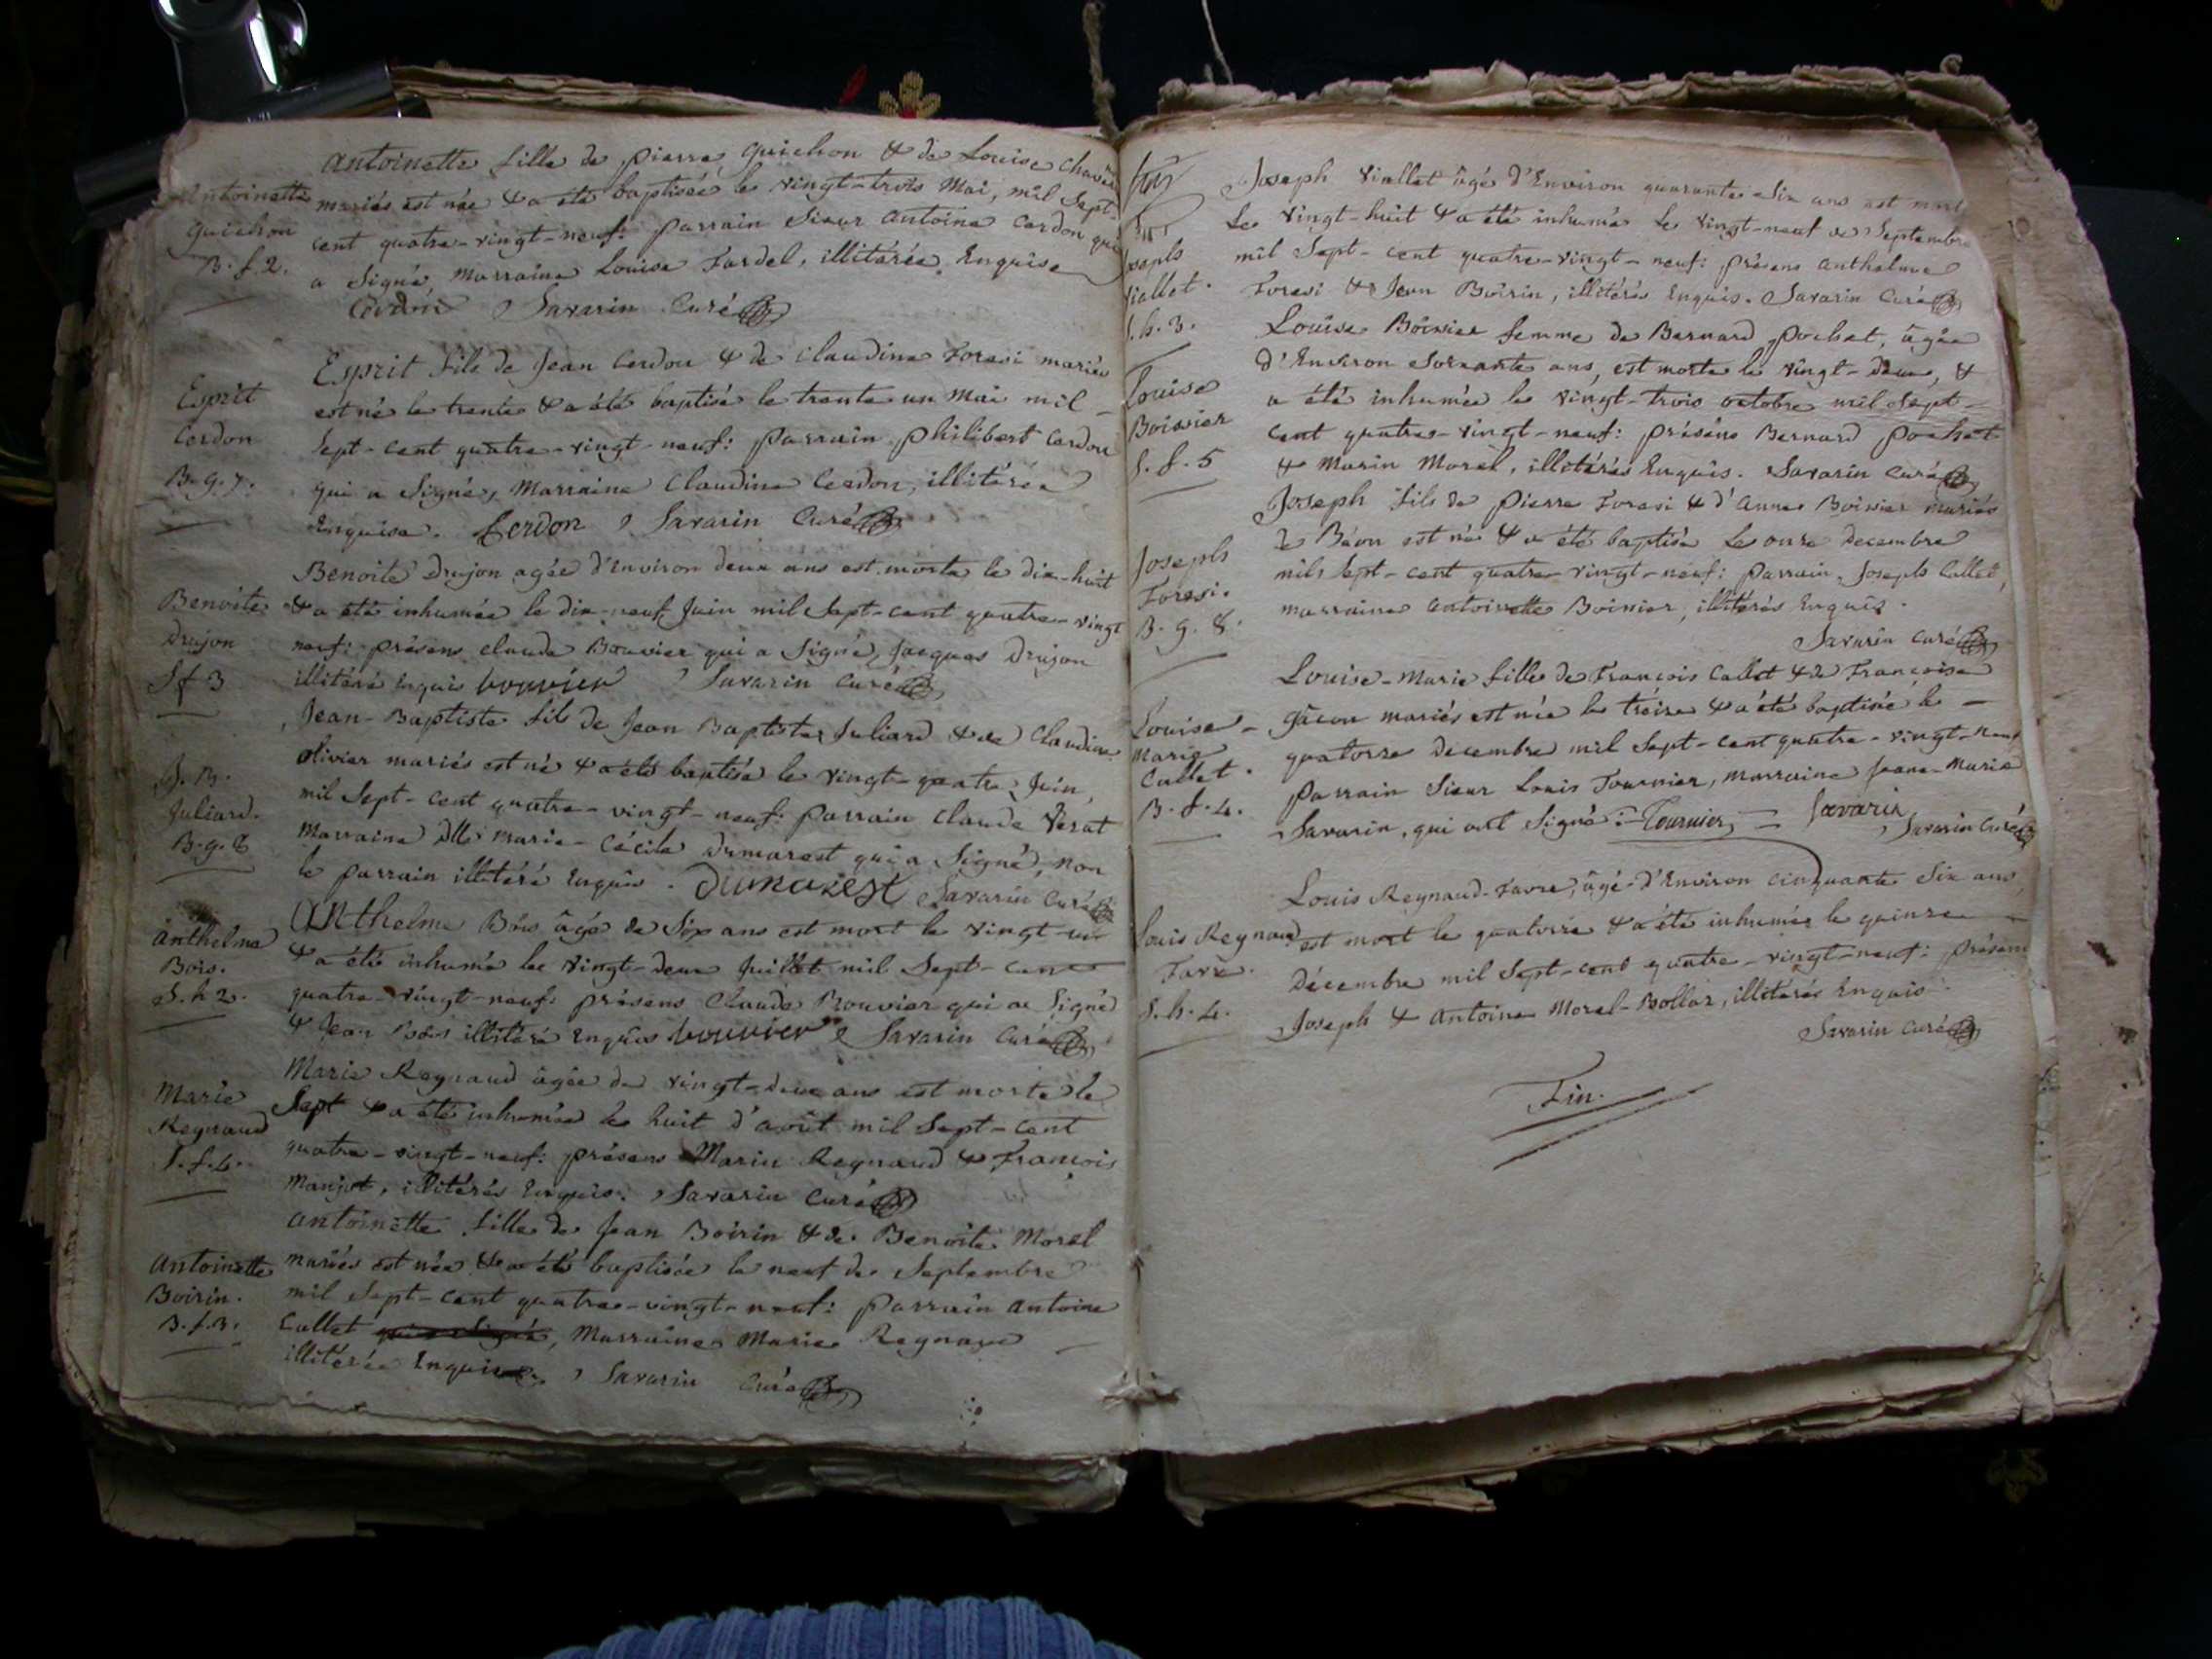 Antoinette
Guichon
B. f. 2.
Antoinette fille de pierre Guichon & de Louise
mariés est née & a été baptisée le vingt-trois Mai, mil Sept-
cent quatre-vingt-neuf: parrain Sieur Antoine Cerdon qui
a Signé, Marraine Louise Fardel, illitérée Enquise
Cerdon Savarin Curé
Esprit
Cerdon
B. g. 7.
Esprit fils de Jean Cerdon & de Claudine Foresi mariés
est né le trente & a été baptisé le trente un Mai mil
Sept-cent quatre-vingt-neuf: parrain philibert Cerdon
qui a Signé, Marraine Claudine Cerdon, illitérée
Enquise. Cerdon Savarin Curé
Benoite
Drujon
S f 3
Benoite Drujon agée d'Environ deux ans est morte le dix-huit
& a été inhumée le dix-neuf Juin mil Sept-cent quatre-vingt
neuf: présens claude Bouvier qui a Signé, Jacques Drujon
illitéré Enquis bouvier Savarin Curé
J. B.
Juliard.
B. g. 8
Jean-Baptiste fils de Jean Baptiste Juliard & de Claudine
Olivier mariés est né & a été baptisé le vingt-quatre Juin,
mil Sept-cent quatre-vingt-neuf: parrain Claude Verat
Marraine Dlle marie-Cécile Dumarest qui a Signé, non
le parrain illitéré Enquis. Dumarest Savarin Curé
Anthelme
Bois.
S. h 2.
Anthelme Bois âgé de Six ans est mort le vingt-un
& a été inhumé le vingt-deux Juillet mil Sept-cent
quatre-vingt-neuf: présens Claude Bouvier qui a Signé
& Jean Bois illitéré Enquis bouvier Savarin Curé
Marie
Reynaud
S. f. 4.
Marie Reynaud âgée de vingt-deux ans est morte le
Sept & a été inhumée le huit d'août mil Sept-cent
quatre-vingt-neuf: présens Marin Reynaud & François
Manjot, illitérés Enquis. Savarin Curé
Antoinette
Boirin.
B. f. 3.
Antoinette fille de Jean Boirin & de Benoite Morel
mariés est née & a été baptisée le neuf de Septembre
mil Sept-cent quatre-vingt-neuf: parrain Antoine
Callet qui a Signé, Marraine Marie Reynaud
illitérée Enquise. Savarin Curé
Joseph
Viallet.
S. h. 3.
Joseph Viallet âgé d'Environ quarante Six ans est mort
Le vingt-huit & a été inhumé Le vingt-neuf de Septembre
mil Sept-cent quatre-vingt-neuf: présens Anthelme
Foresi & Jean Boirin, illitérés Enquis. Savarin Curé
Louise
Boissier
S. f. 5
Louise Boissier femme de Bernard pochet, âgée
d'Environ Soixante ans, est morte le vingt-deux, &
a été inhumée le vingt-trois octobre mil Sept-
cent quatre-vingt-neuf: présens Bernard pochet
& Marin Morel, illitérés Enquis. Savarin Curé
Joseph
Foresi.
B. g. 8.
Joseph fils de Pierre Foresi & d'Anne Boissier mariés
de Béon est né & a été baptisé Le onze decembre
mil Sept-cent quatre-vingt-neuf: parrain Joseph Callet,
marraine Antoinette Boissier, illitérés Enquis.
Savarin Curé
Louise-
Marie
Callet.
B. f. 4.
Louise-Marie fille de François Callet & de Françoise
Gâcon mariés est née le tréize & a été baptisée le
quatorze decembre mil Sept-cent quatre-vingt-neuf
parrain Sieur Louis Tournier, marraine Jeane-Marie
Savarin, qui ont Signé: Tournier Savarin Savarin Curé
Louis Reynaud
Favre.
S. h. 4.
Louis Reynaud-Favre, âgé d'Environ cinquante Six ans,
est mort le quatorze & a été inhumé le quinze
décembre mil Sept-cent quatre-vingt-neuf: présens
Joseph & Antoine Morel-Bollaz, illitérés Enquis
Savarin Curé
Fin.